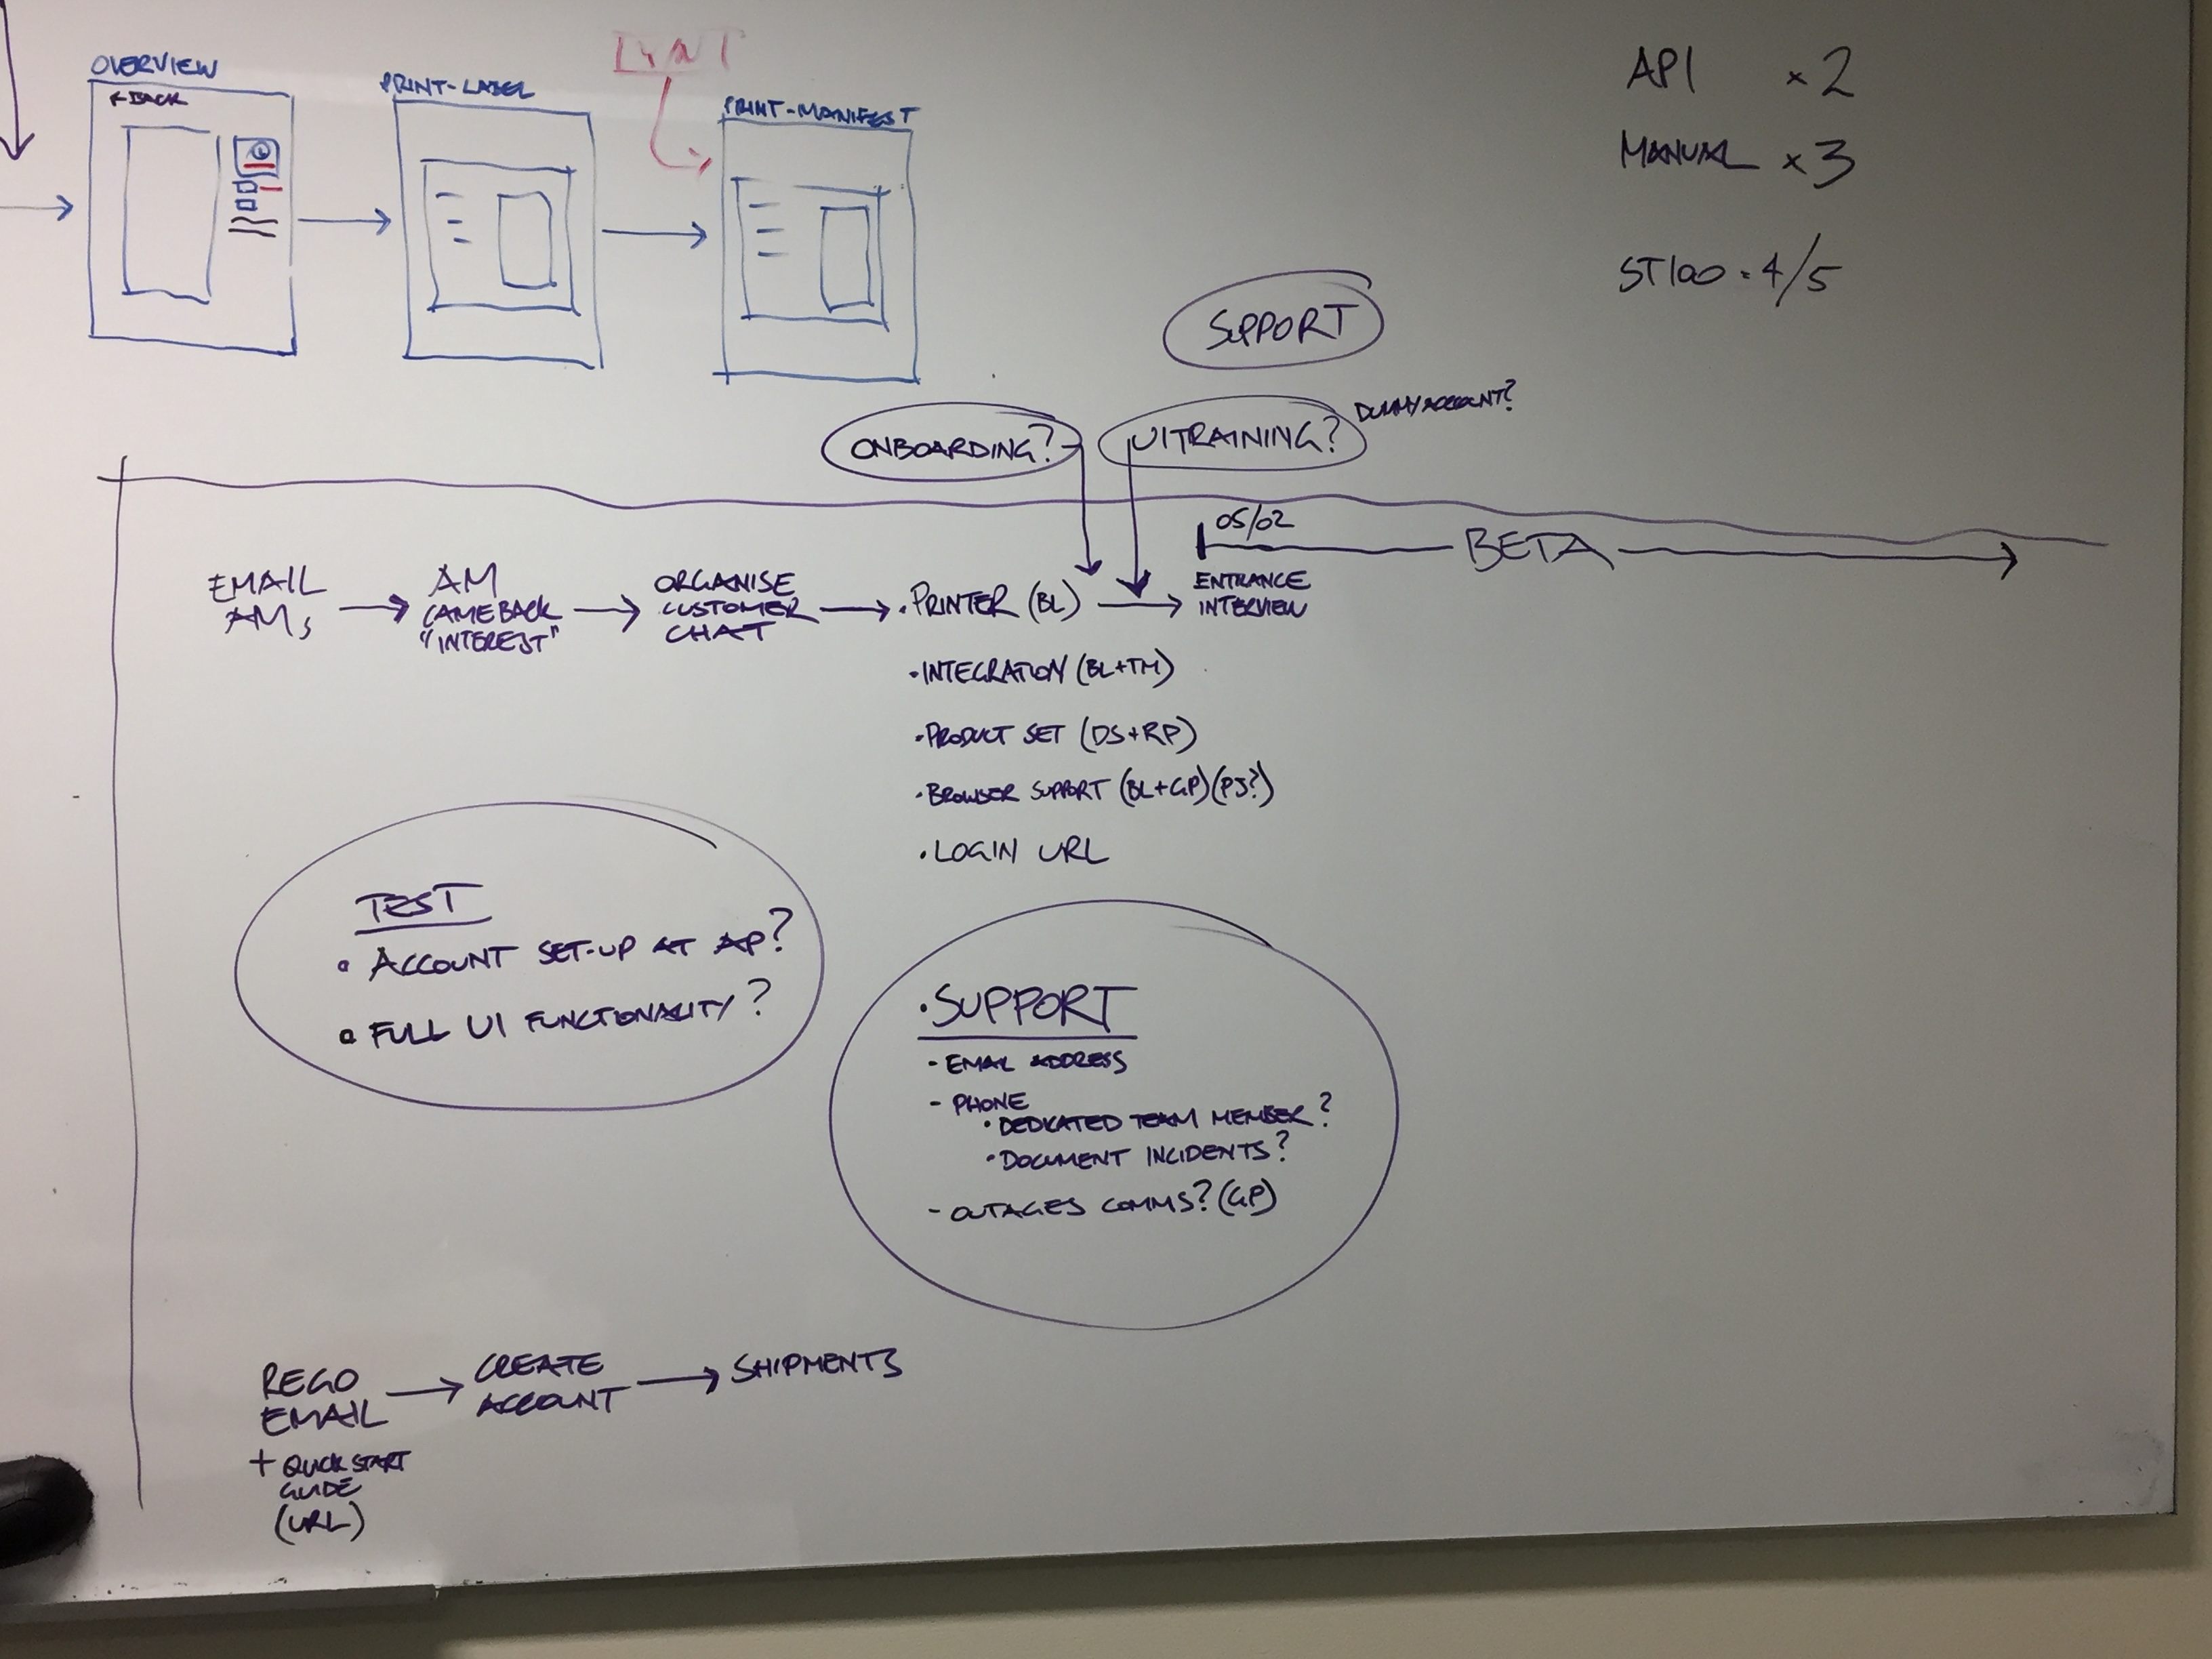 OVERVIEW
← BACK
PRINT-LABEL
PRINT-MANIFEST
API × 2
MANUAL × 3
ST100 = 4/5
SUPPORT
ONBOARDING?
UI TRAINING?
DUMMY ACCOUNT?
05/02
BETA
EMAIL
AMs
AM
CAME BACK
"INTEREST"
ORGANISE
CUSTOMER
CHAT
• PRINTER (BL)
ENTRANCE
INTERVIEW
• INTEGRATION (BL+TM)
• PRODUCT SET (DS+RP)
• BROWSER SUPPORT (BL+GP) (PJ?)
• LOGIN URL
TEST
• ACCOUNT SET-UP AT AP?
• FULL UI FUNCTIONALITY?
• SUPPORT
- EMAIL ADDRESS
- PHONE
• DEDICATED TEAM MEMBER?
• DOCUMENT INCIDENTS?
- OUTAGES COMMS? (GP)
REGO
EMAIL
+ QUICK START
GUIDE
(URL)
CREATE
ACCOUNT
SHIPMENTS